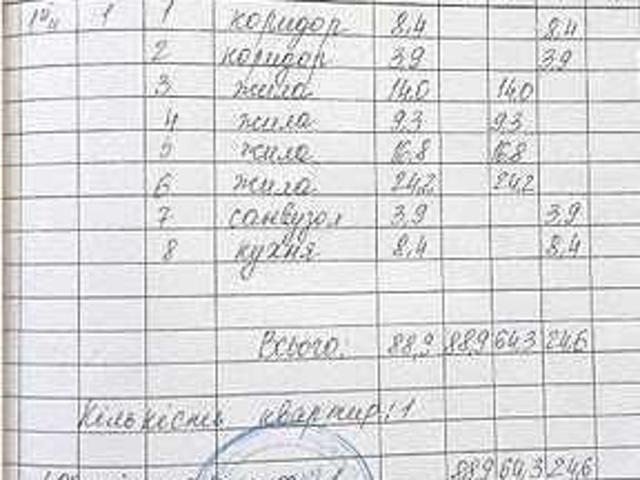 1 1 коридор 8,4 8,4
2 коридор 3,9 3,9
3 жила 14,0 14,0
4 жила 9,3 9,3
5 жила 16,8 16,8
6 жила 24,2 24,2
7 санвузол 3,9 3,9
8 кухня 8,4 8,4
Всього: 88,9 88,9 64,3 24,6
Кількість квартир: 1
88,9 64,3 24,6